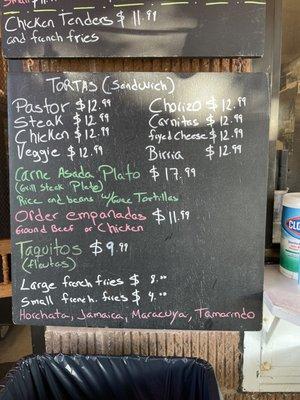 Small
Chicken Tenders $ 11.99
and french fries
TORTAS (Sandwich)
Pastor $ 12.99
Steak $ 12.99
Chicken $ 12.99
Veggie $ 12.99
Chorizo $ 12.99
Carnitas $ 12.99
fryed Cheese $ 12.99
Birria $ 12.99
Carne Asada Plato $ 17.99
(Grill Steak Plato)
Rice and beans w/ Tortillas
Order empanadas $ 11.99
Ground Beef or Chicken
Taquitos $ 9.99
(flautas)
Large french fries $ 8.00
Small french. fries $ 4.00
Horchata, Jamaica, Maracuya, Tamarindo